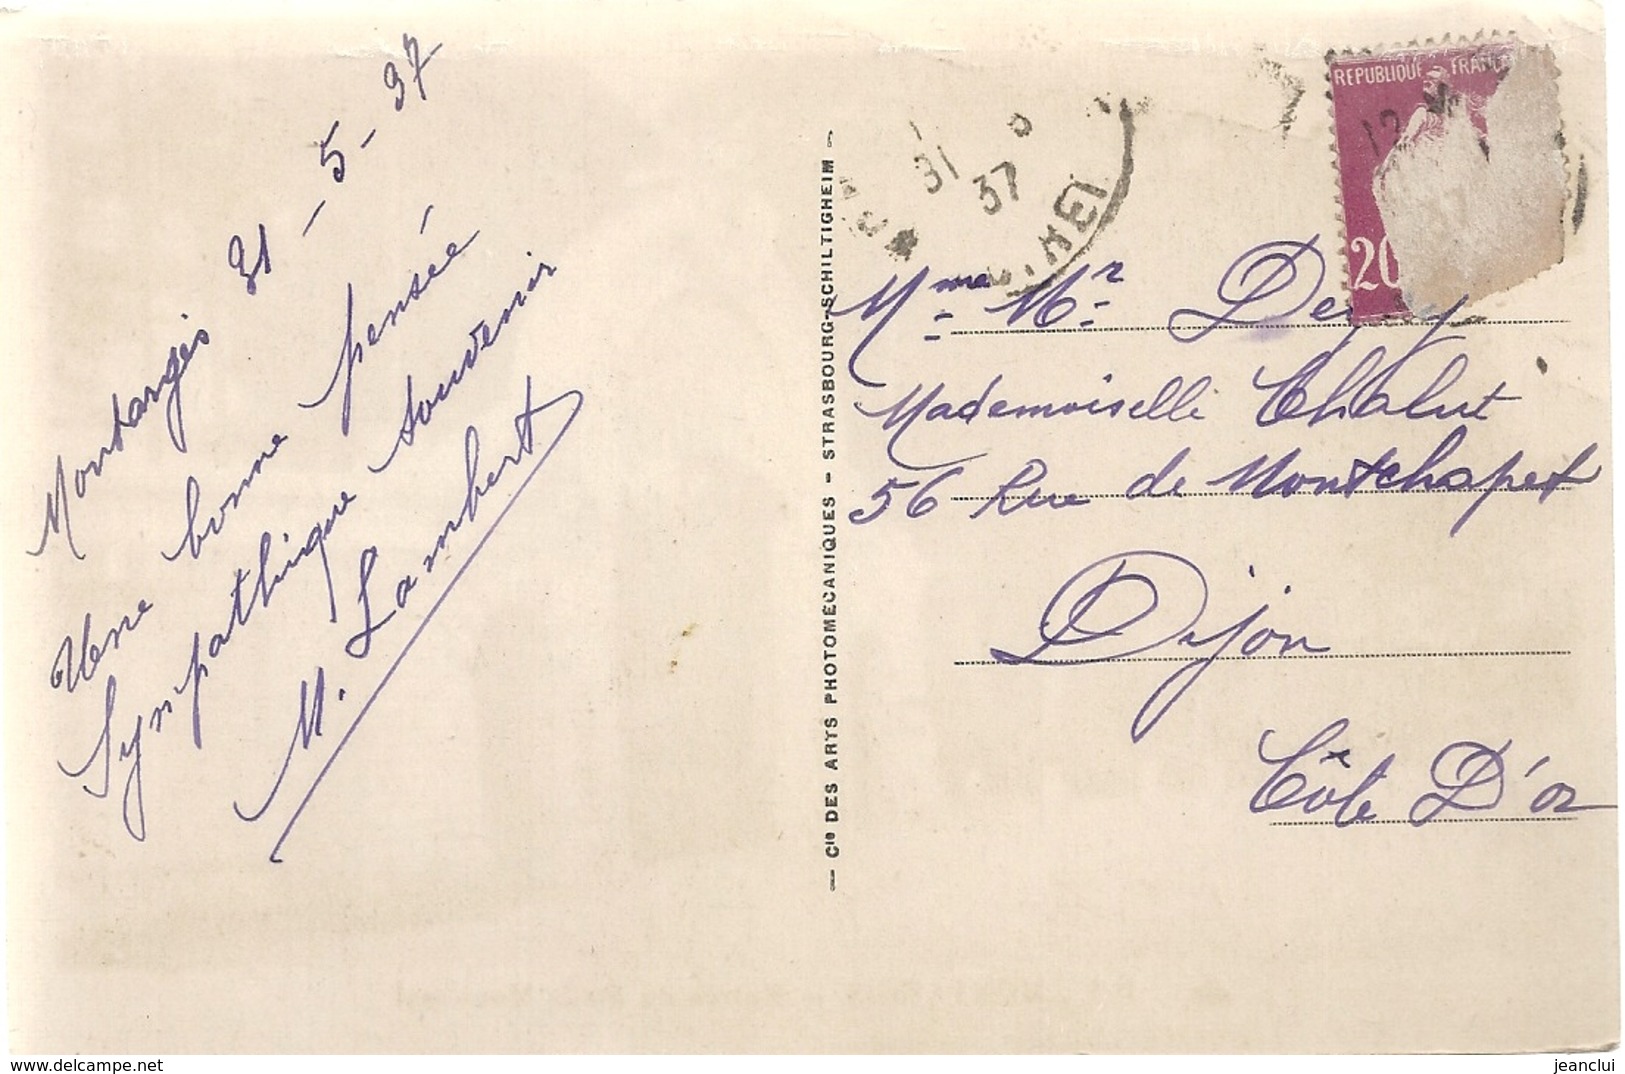 Montargis 31-5-37
Une bonne pensée
Sympathique souvenir
M. Lambert
— Cie DES ARTS PHOTOMÉCANIQUES - STRASBOURG-SCHILTIGHEIM —
REPUBLIQUE FRANCAISE
20
31
37
12
Mme Mr
Mademoiselle Chalut
56 Rue de Montchapet
Dijon
Côte D'or
http://www.delcampe.net
jeanclui